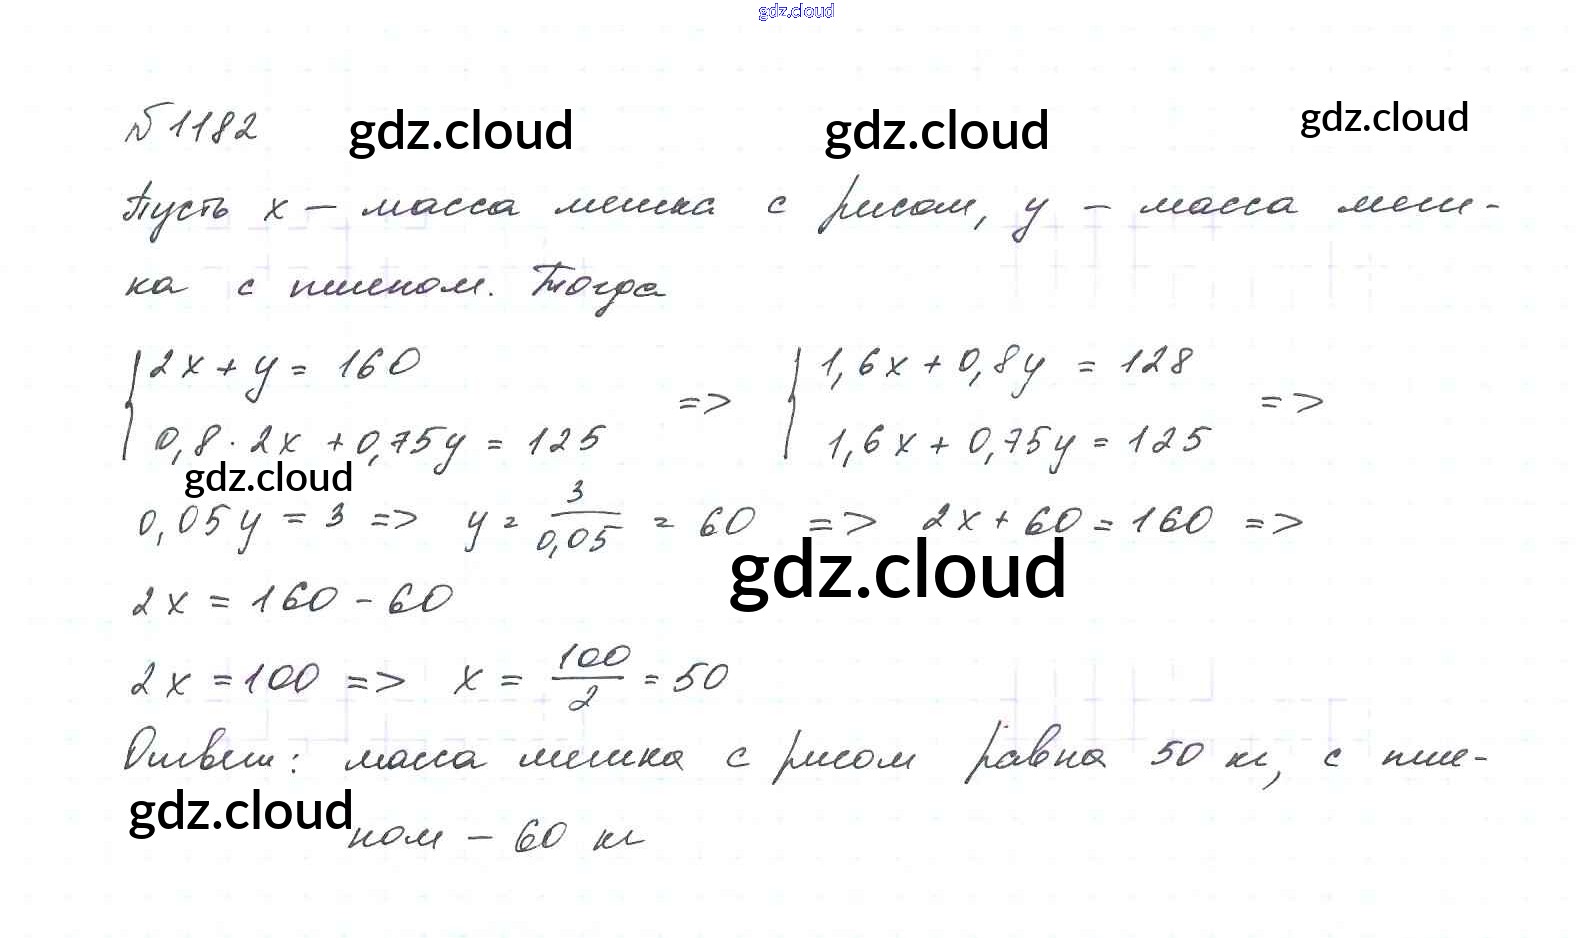 gdz.cloud
№1182 gdz.cloud gdz.cloud gdz.cloud
Пусть x – масса мешка с рисом, y – масса меш-
ка с пшеном. Тогда
{ 2x + y = 160 => { 1,6x + 0,8y = 128 =>
0,8 · 2x + 0,75y = 125 1,6x + 0,75y = 125
gdz.cloud
0,05y = 3 => y = 3/0,05 = 60 => 2x + 60 = 160 =>
gdz.cloud
2x = 160 – 60
2x = 100 => x = 100/2 = 50
Ответ: масса мешка с рисом равна 50 кг, с пше-
gdz.cloud
ном – 60 кг